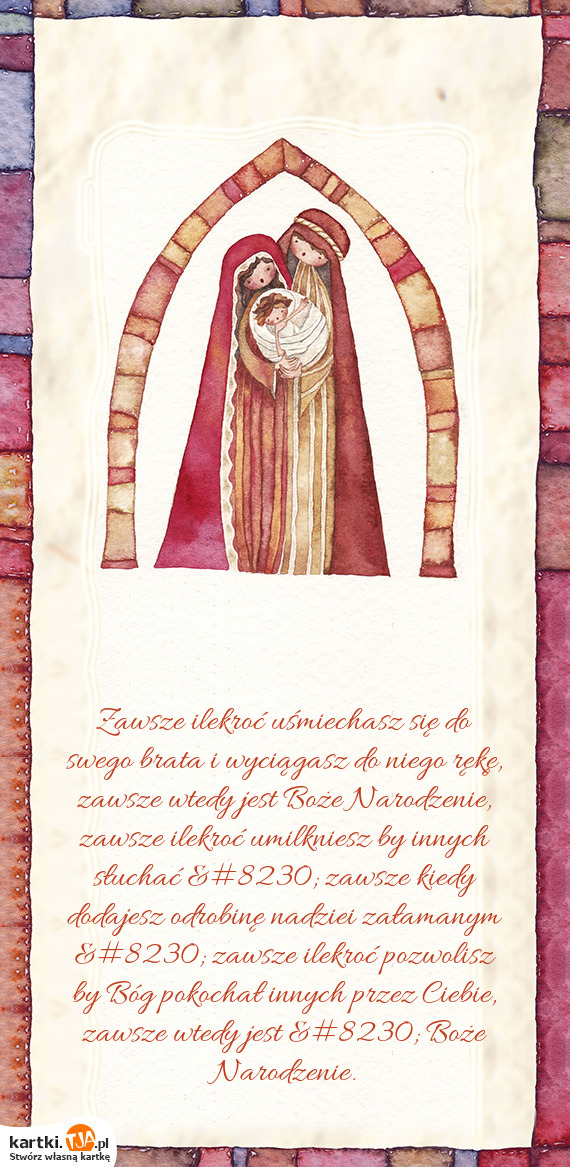 Zawsze ilekroć uśmiechasz się do
swego brata i wyciągasz do niego rękę,
zawsze wtedy jest Boże Narodzenie,
zawsze ilekroć umilkniesz by innych
słuchać &#8230; zawsze kiedy
dodajesz odrobinę nadziei załamanym
&#8230; zawsze ilekroć pozwolisz
by Bóg pokochał innych przez Ciebie,
zawsze wtedy jest &#8230; Boże
Narodzenie.
kartki.TJA.pl
Stwórz własną kartkę